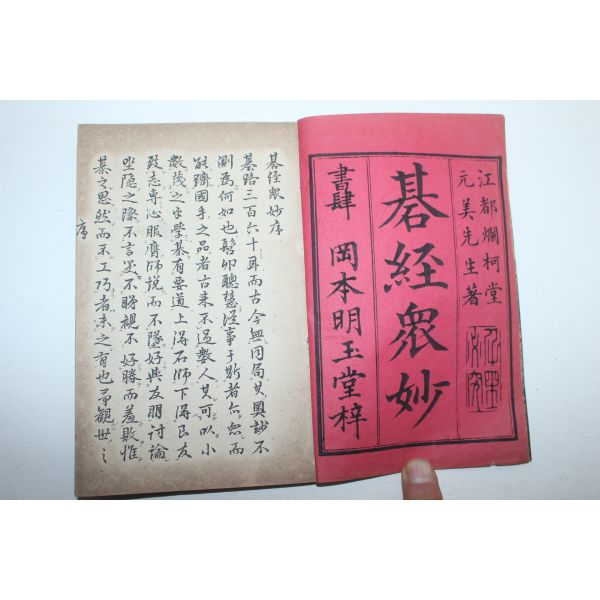 江都爛柯堂
元美先生著
碁経衆妙
書肆 岡本明玉堂梓
碁経衆妙序
碁路三百六十耳而古今無同局其奥玅不
測為何如也髫卯聰慧從事于斯者亦衆而
能躋國手之品者古来不過數人其可以小
數蔑之乎學碁有要道上得石師下得良友
致志専心服膺師説而不墜好與友朋討論
坐隠之際不言笑不睇視不好勝而羞敗惟
碁之思然而不工巧者未之有也予觀世之
序